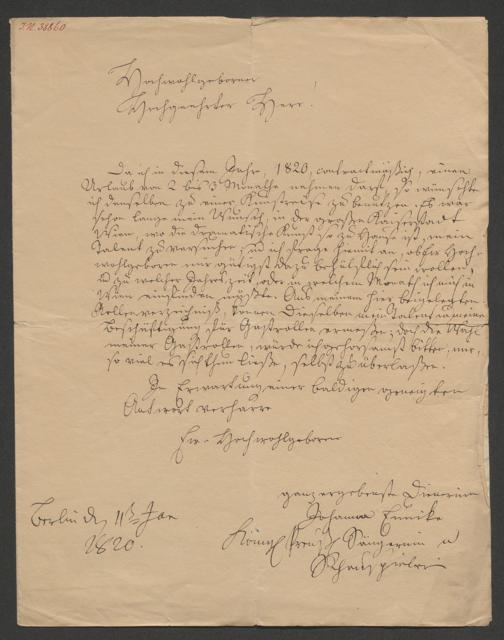 I.N. 38860
Hochwohlgeborner
Hochgeehrter Herr!
Da ich in diesem Jahre, 1820, contractmäßig, einen
Urlaub von 2 bis 3 Monathe nehmen darf, so wünschte
ich denselben zu einer Kunstreise zu benutzen. Es war
schon lange mein Wunsch, in der großen Kaiserstadt
Wien, wo die dramatische Kunst so zu Hause ist, mein
Talent zu versuchen, und ich frage hiemit an, ob Ew: Hoch-
wohlgeboren mir gütigst dazu behülflich sein wollen,
und zu welcher Jahreszeit, oder in welchem Monath ich mich in
Wien einfinden müßte. Aus meinem hier beigelegten
Rollenverzeichniß, können Dieselben mein Talent und meine
Beschäftigung für Gastrollen ermessen; doch die Wahl
meiner Gastrollen, würde ich gehorsamst bitten, mir,
so viel es sich thun ließe, selbst zu überlaßen.
In Erwartung einer baldigen geneigten
Antwort verharre
Ew. Hochwohlgeboren
ganz ergebenste Dienerin
Johanna Eunicke
Königl. Preuß. Sängerin u
Schauspielerin
Berlin d. 11t Jan
1820.